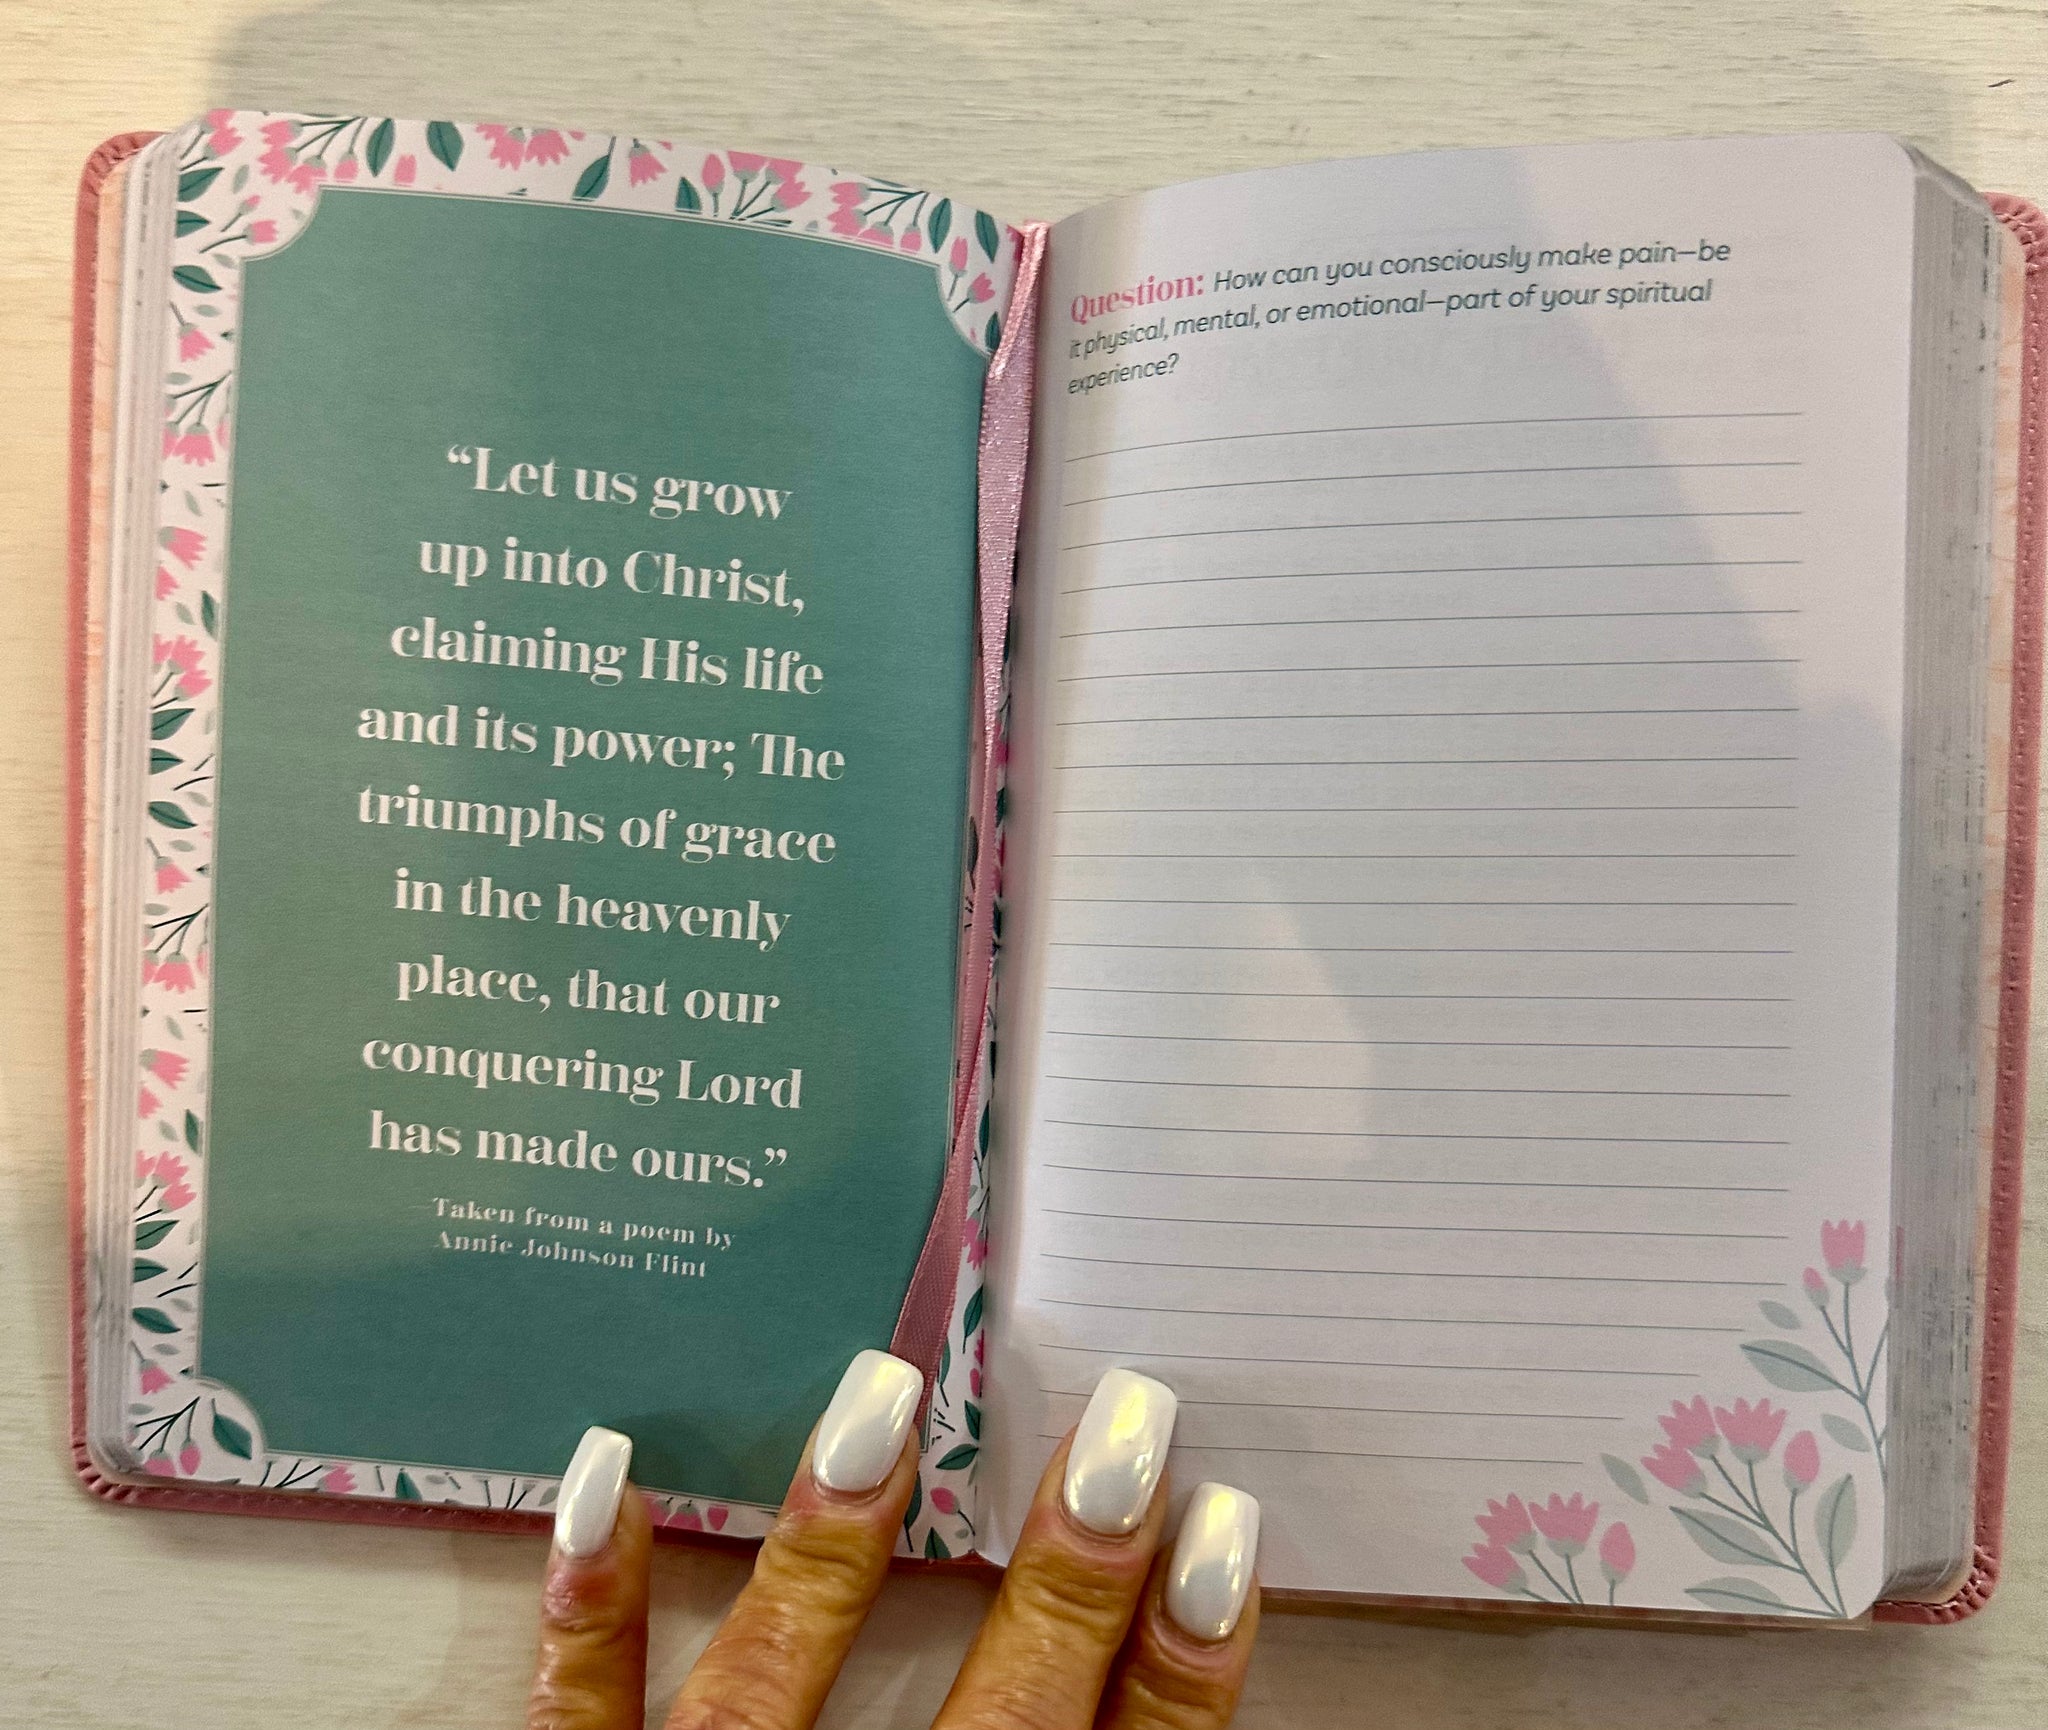 “Let us grow
up into Christ,
claiming His life
and its power; The
triumphs of grace
in the heavenly
place, that our
conquering Lord
has made ours.”
Taken from a poem by
Annie Johnson Flint
Question: How can you consciously make pain—be
it physical, mental, or emotional—part of your spiritual
experience?